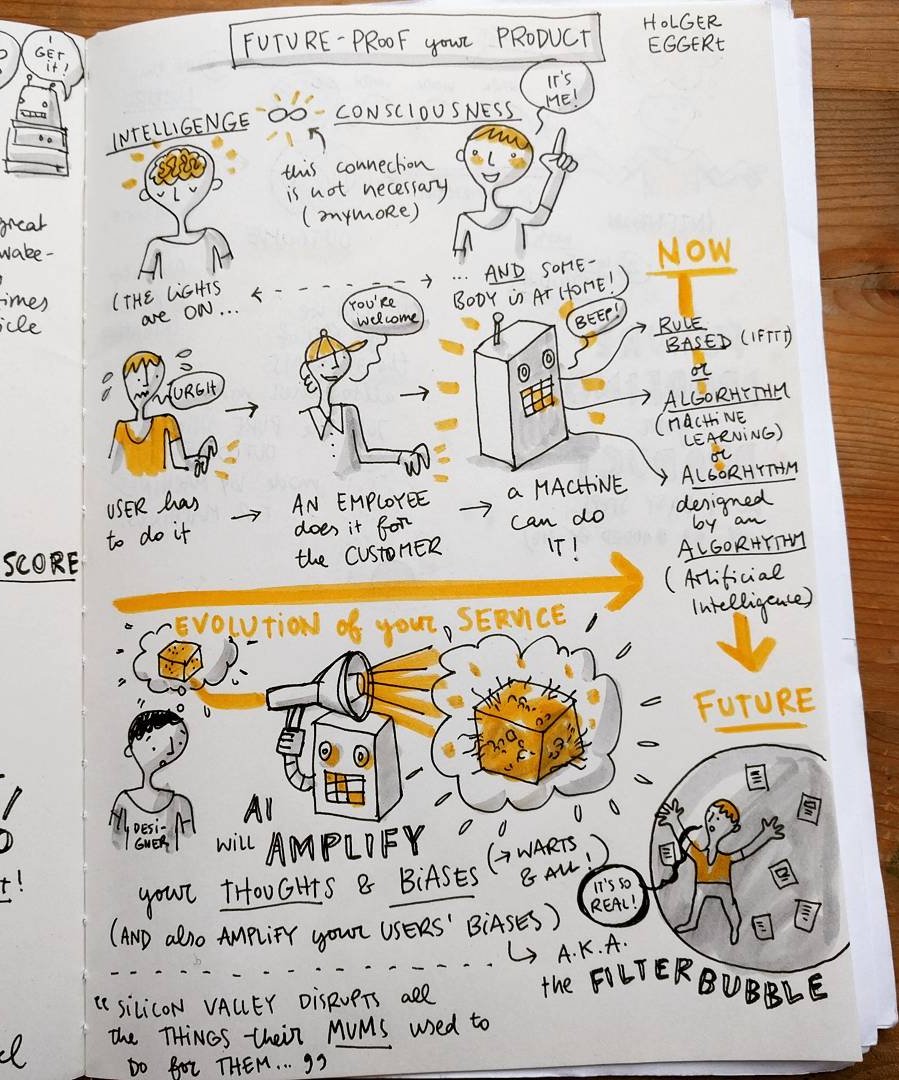 I
GET
it!
great
wake-
times
icle
SCORE
t!
FUTURE-PROOF your PRODUCT
HOLGER
EGGERT
INTELLIGENCE
CONSCIOUSNESS
IT'S
ME!
this connection
is not necessary
(anymore)
(THE LIGHTS
are ON...
... AND SOME-
BODY is AT HOME!)
NOW
URGH
YOU'RE
welcome
BEEP!
RULE
BASED (IFTTT)
or
ALGORHYTHM
(MACHINE
LEARNING)
or
ALGORHYTHM
designed
by an
ALGORHYTHM
(Artificial
Intelligence)
USER has
to do it
AN EMPLOYEE
does it for
the CUSTOMER
a MACHINE
can do
IT!
EVOLUTION of your SERVICE
FUTURE
DESI-
GNER
AI
will AMPLIFY
your THOUGHTS & BIASES
(→ WARTS
& ALL!)
(AND also AMPLIFY your USERS' BIASES)
IT'S SO
REAL!
A.K.A.
the FILTER BUBBLE
"SILICON VALLEY DISRUPTS all
the THINGS their MUMS used to
DO for THEM..."